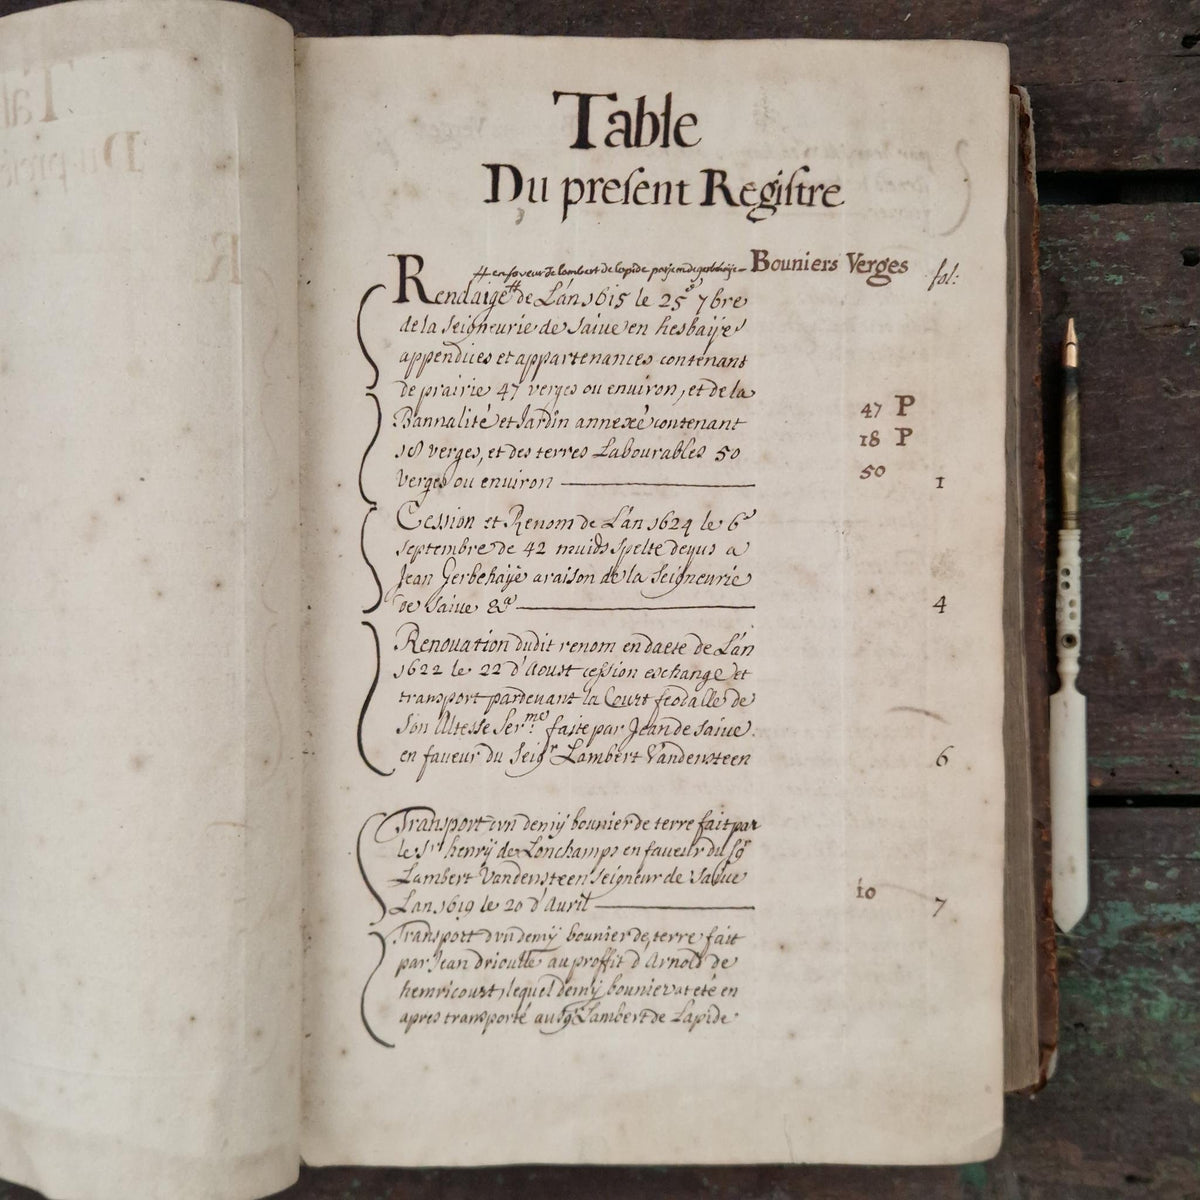 Table
Du present Registre
Bouniers Verges fol:
# en faveur de lambert de lapide par jean de gerbehaije
Rendaige # de L'an 1615 le 25e 7bre
de la seigneurie de saive en hesbaije
appendices et appartenances contenant
de prairie 47 verges ou environ, et de la
Bannalité et Jardin annexé contenant 47 P
18 verges, et des terres Labourables 50 18 P
verges ou environ 50 1
Cession et Renom de L'an 1624 le 6e
septembre de 42 muids spelte deçus a
Jean Gerbehaije a raison de la seigneurie
de saive &a 4
Renovation dudit renom en daete de L'an
1622 le 22 d'Aoust cession eschange et
transport pardevant la Court feodalle de
son Altesse Serme faite par Jean de saive
en faveur du seigr Lambert Vandensteen 6
Transport d'vn demij bounier de terre fait par
le Sr henrij de Lonchamps en faveur du sgr
Lambert Vandensteen seigneur de saive
Lan 1619 le 20 d'Avril 10 7
Transport d'vn demij bounier de terre fait
par Jean drioulle au proffit d'Arnold de
hemricourt, lequel demij bounier at eté en
apres transporté au sgr Lambert de Lapide